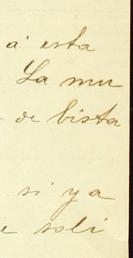 á esta
La mu
de bista
si ya
e soli